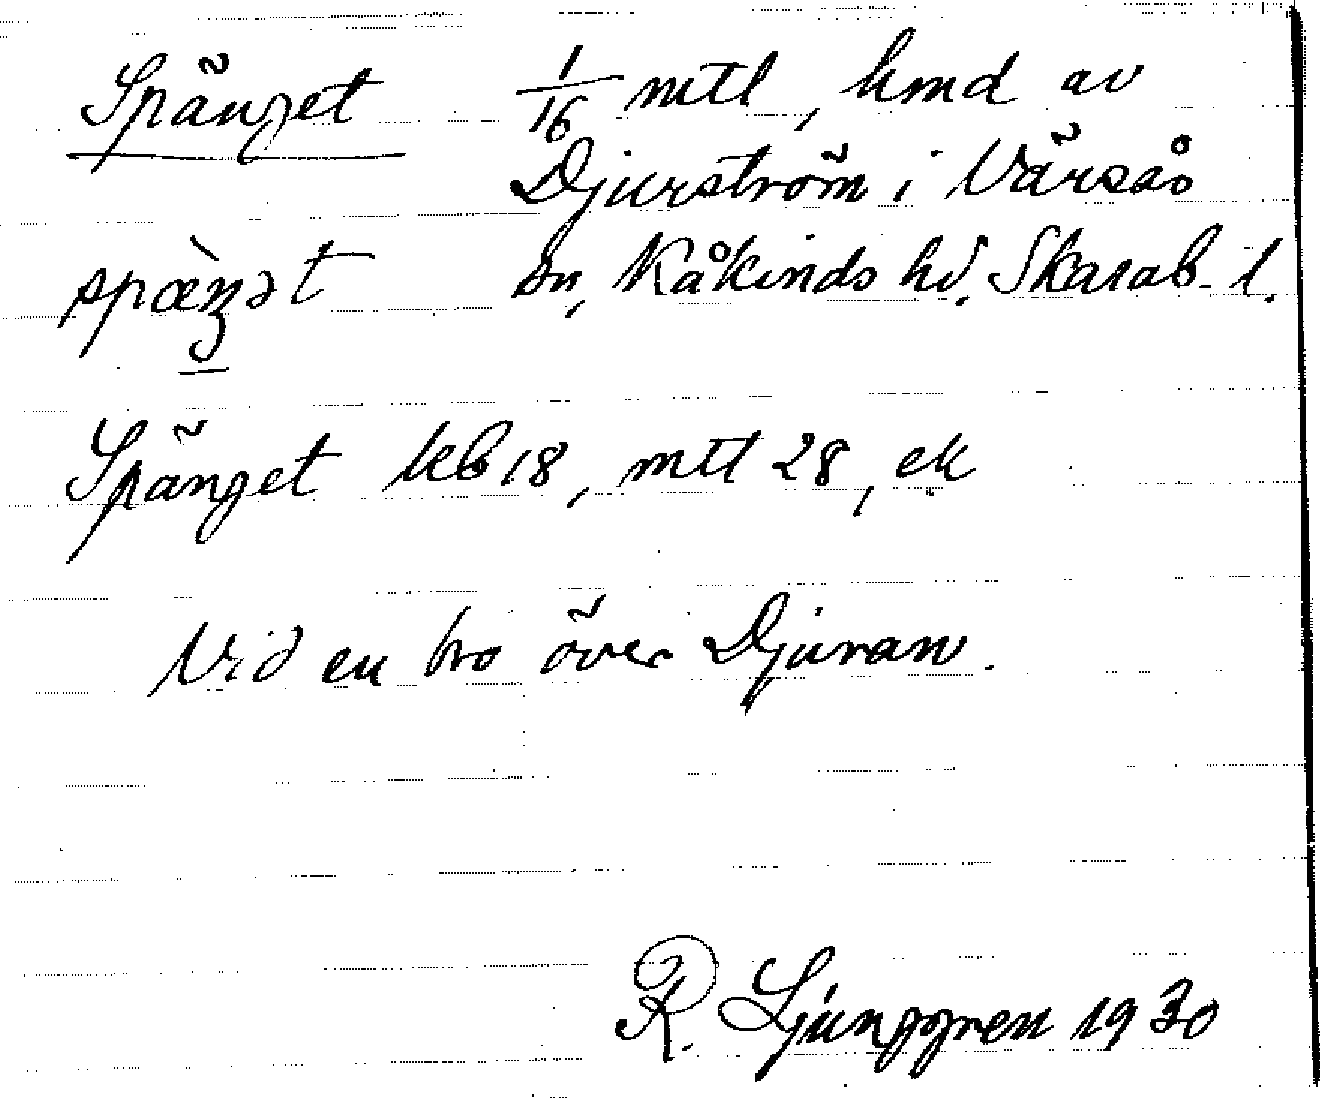 Spänget 1/16 mtl, hmd av
Djurström i Värsås
spæ̀ŋət sn, Kåkinds hd. Skarab. l.
Spänget kb 18, mtl 28, ek
Vid en bro över Djuran.
R. Ljunggren 1930